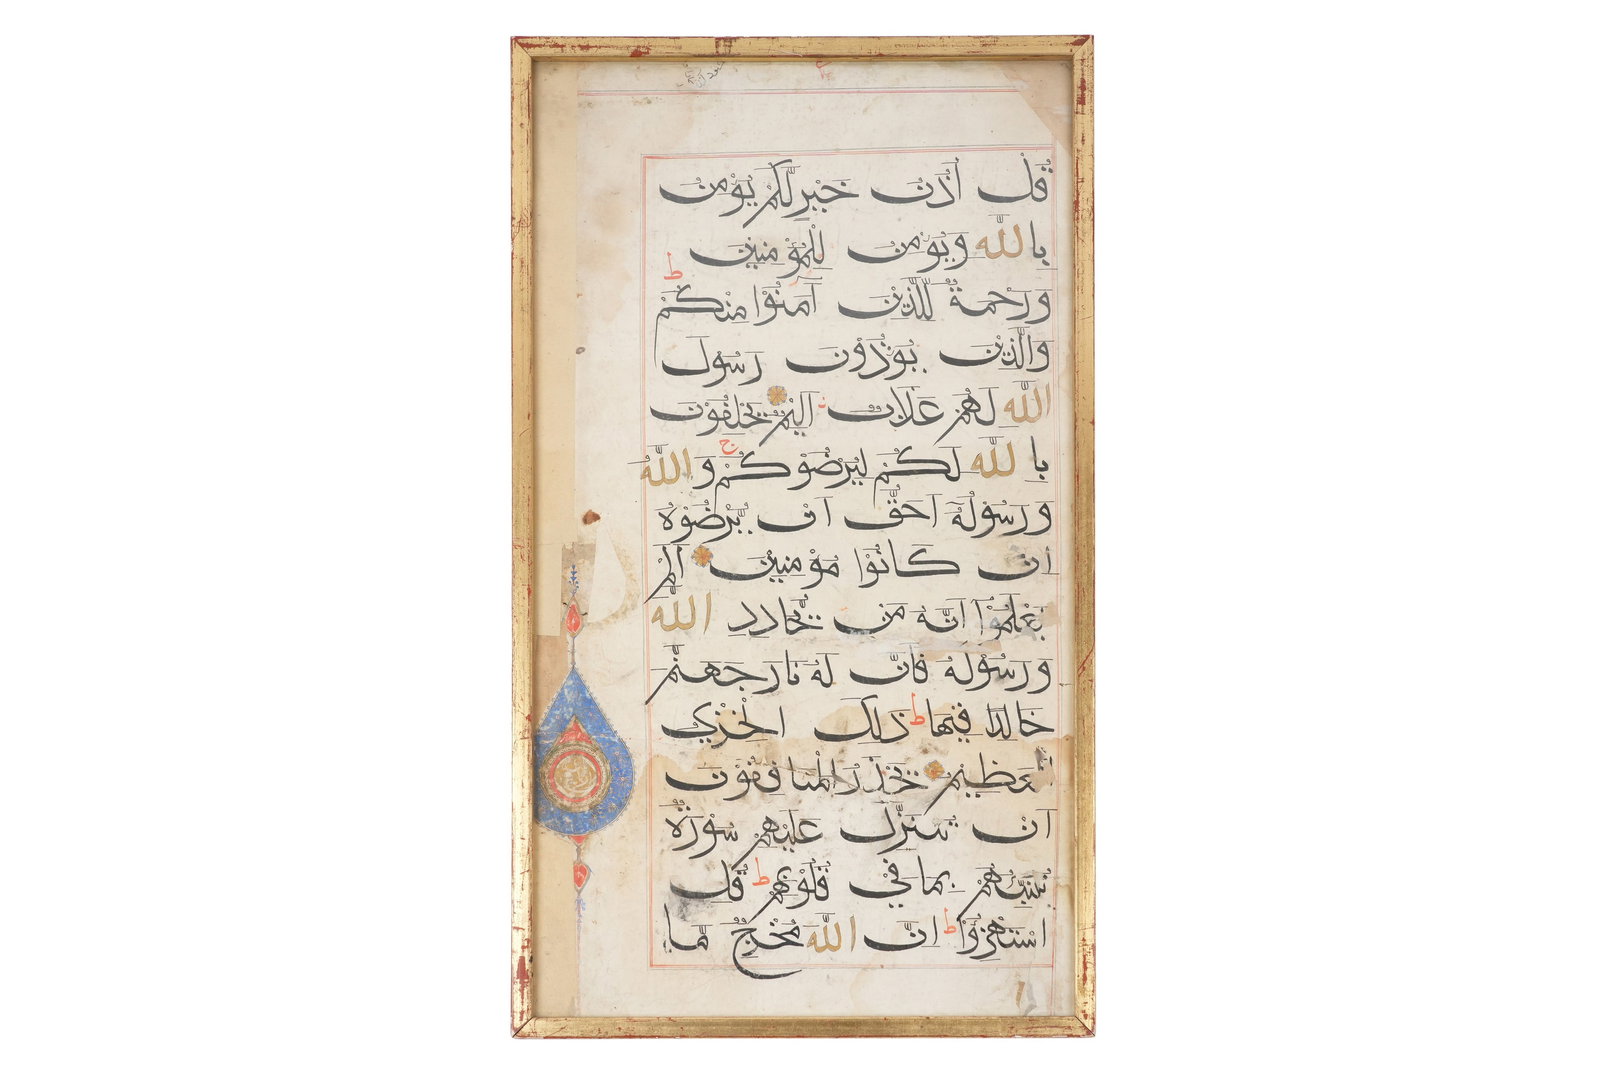 قُلْ أُذُنُ خَيْرٍ لَّكُمْ يُؤْمِنُ
بِاللّٰهِ وَيُؤْمِنُ لِلْمُؤْمِنِيْنَ
ط
وَرَحْمَةٌ لِّلَّذِيْنَ اٰمَنُوْا مِنْكُمْ
وَالَّذِيْنَ يُؤْذُوْنَ رَسُوْلَ
اللّٰهِ لَهُمْ عَذَابٌ اَلِيْمٌ يَحْلِفُوْنَ
بِاللّٰهِ لَكُمْ لِيُرْضُوْكُمْ ج وَاللّٰهُ
وَرَسُوْلُهٗ اَحَقُّ اَنْ يُّرْضُوْهُ
اِنْ كَانُوْا مُؤْمِنِيْنَ اَلَمْ
يَعْلَمُوْا اَنَّهٗ مَنْ يُّحَادِدِ اللّٰهَ
وَرَسُوْلَهٗ فَاَنَّ لَهٗ نَارَ جَهَنَّمَ
خَالِدًا فِيْهَا ط ذٰلِكَ الْخِزْيُ
الْعَظِيْمُ يَحْذَرُ الْمُنَافِقُوْنَ
اَنْ تُنَزَّلَ عَلَيْهِمْ سُوْرَةٌ
تُنَبِّئُهُمْ بِمَا فِيْ قُلُوْبِهِمْ ط قُلِ
اسْتَهْزِءُوْا ط اِنَّ اللّٰهَ مُخْرِجٌ مَّا